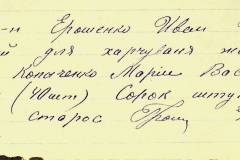 -н Ерошенко Ивем
й для харчуваня
Копаченко Маріи Вас
(40шт) Сорок шту
старос